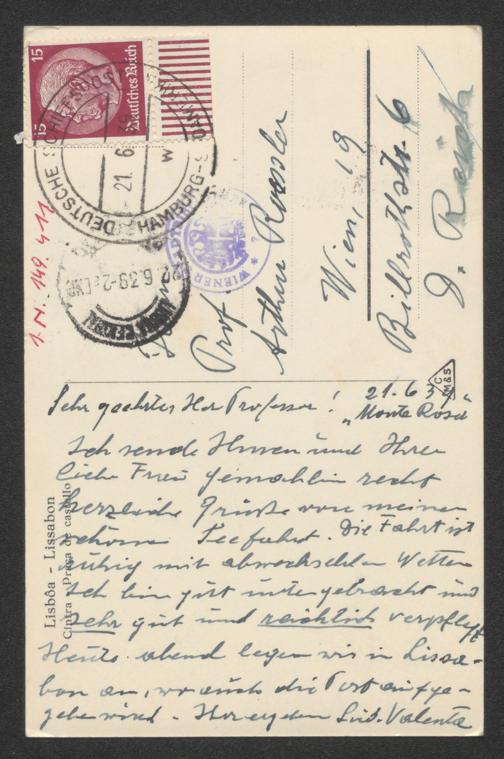 15
15
Deutsches Reich
DEUTSCHE SCHIFFSPOST
HAMBURG-S
21.6.39
W
22.6.39-2
LISBOA CENTRAL
WIENER
I.N. 149.411
Prof.
Arthur Roessler
Wien, 19
Billrothstr. 6
D. Reich
C
M&S
21.6.39
"Monte Rosa"
Sehr geehrter Herr Professor!
Ich sende Ihnen und Ihrer
liebe Frau Gemahlin recht
herzliche Grüsse von meiner
schönen Seefahrt. Die Fahrt ist
ruhig mit abwechselnden Wetter
Ich bin gut untergebracht und
sehr gut und reichlich verpflegt
Heute abend legen wir in Lissa-
bon an, wo auch die Post aufge-
geben wird. Ihr ergeben Lud. Valenta
Lisbôa - Lissabon
Cintra - Praça de castello